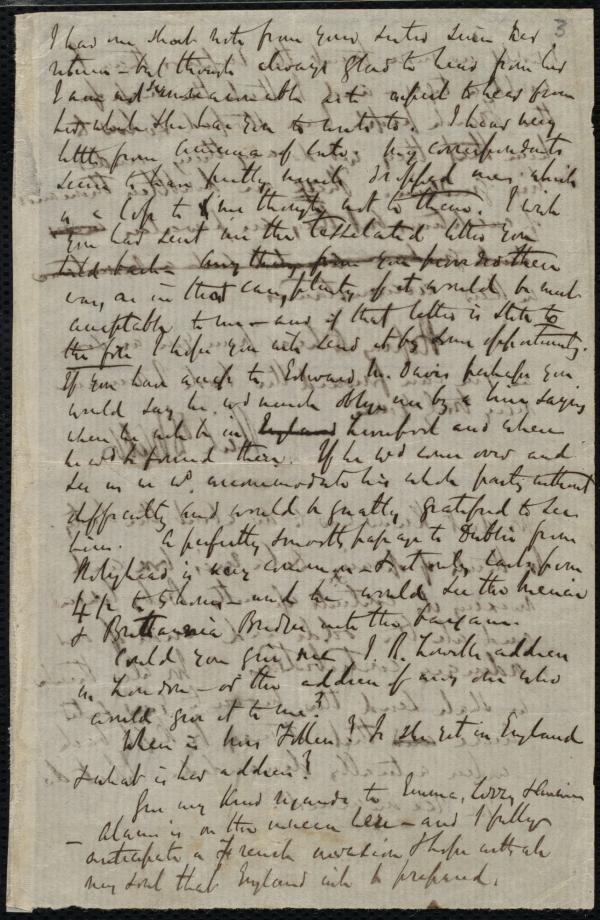 3
I had one short note from your sister since her
return – but though always glad to hear from her
I am not so unreasonable as to expect to hear from
her when she has you to write to. I hear very
little from America of late. My correspondents
seem to have pretty much dropped me, which
is a loss to me though not to them. I wish
you had sent me the tesselated letter you
held back – any thing from you provided there
was, as in that case, plenty of it would be most
acceptable to me – and if that letter is still to
the fore I hope you will send it by some opportunity.
If you have access to Edward M. Davis perhaps you
would say he wd much oblige me by a line saying
when he will be in England Liverpool and where
he wd be found there. If he wd come over and
see us we wd accommodate his whole party without
difficulty and would be greatly gratified to see
him. A perfectly smooth passage to Dublin from
Holyhead is very common – & it only lasts from
4 1/2 to 5 hours – and he would see the Menai
& Brittannia Bridge into the bargain.
Could you give me J. R. Lowell's address
in London – or the address of any one who
would give it to me?
Where is Mrs Follen? Is she yet in England
& what is her address?
Give my kind regards to Emma, Lizzy &
– Alarm is on the increase here – and I fully
anticipate a French invasion & hope with all
my soul that England will be prepared.